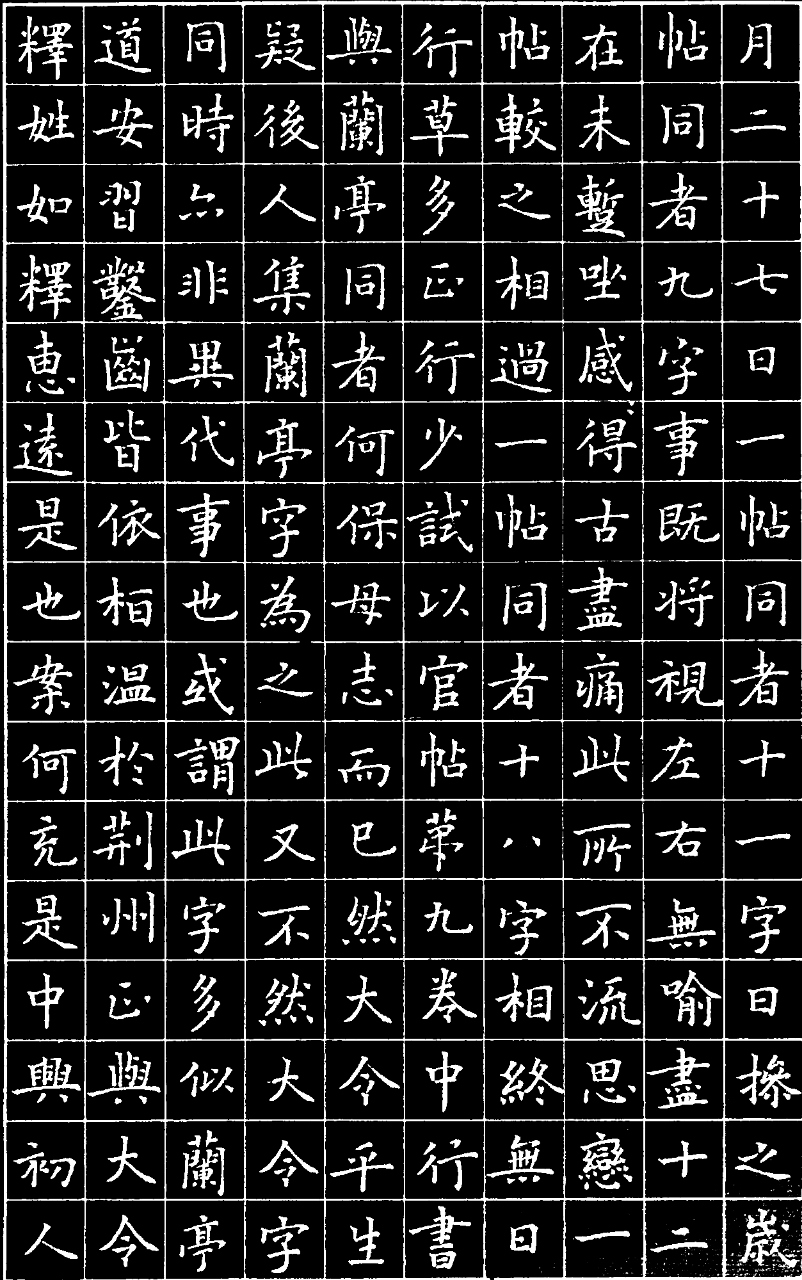 月二十七日一帖同者十一字日操之嵗
帖同者九字事既将視左右無喻盡十二
在未蹔唑感得古盡痛此所不流思戀一
帖較之相過一帖同者十八字相終無日
行草多正行少試以官帖苐九卷中行書
與蘭亭同者何保母志而已然大令平生
疑後人集蘭亭字為之此又不然大令字
同時亦非異代事也或謂此字多似蘭亭
道安習鑿齒皆依桓温於荆州正與大令
釋姓如釋惠遠是也案何充是中興初人